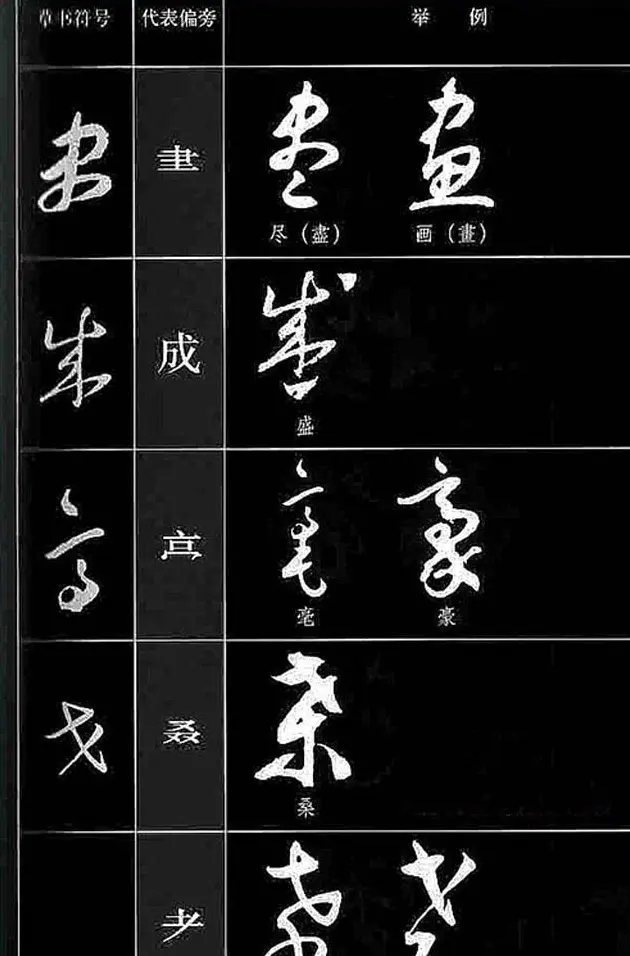 草书符号 代表偏旁 举例
⺻
尽（盡） 画（畫）
成
盛
毫 豪
叒
桑
耂